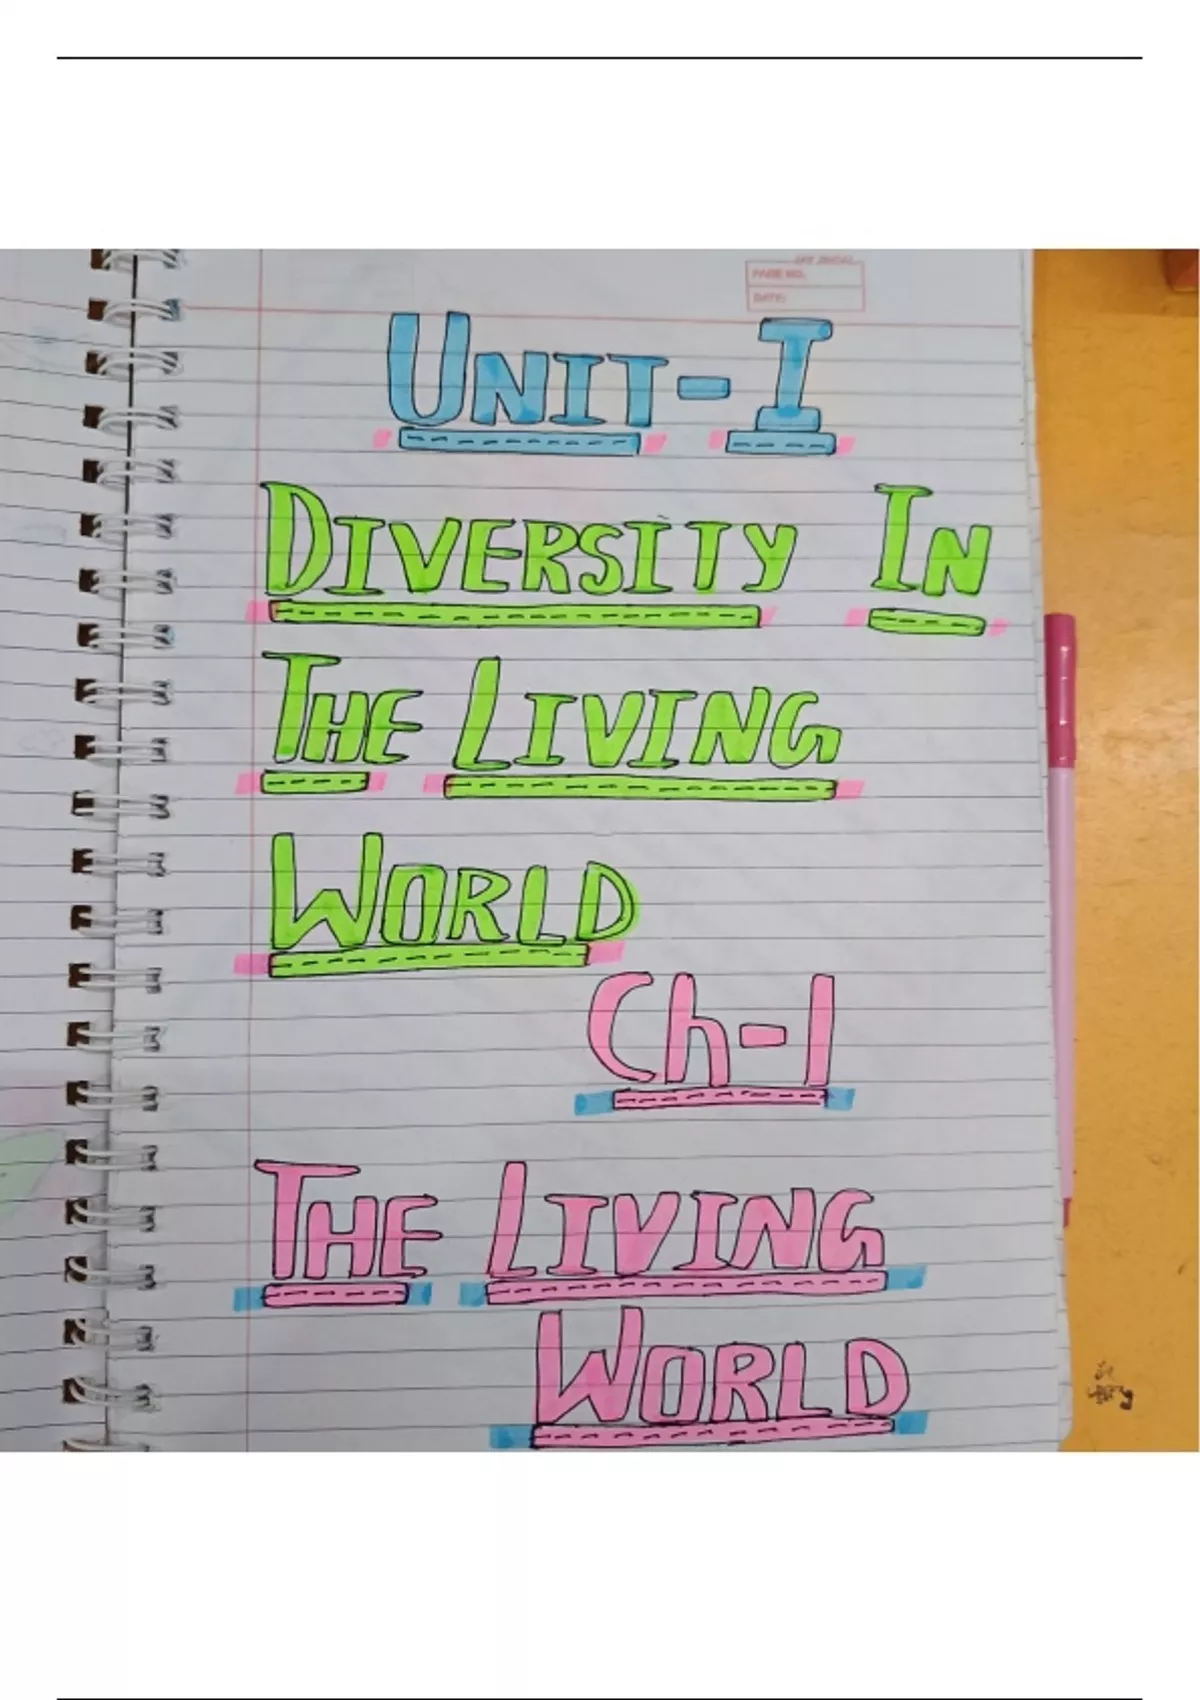 PAGE NO.
DATE:
UNIT-I
DIVERSITY IN
THE LIVING
WORLD
Ch-1
THE LIVING
WORLD